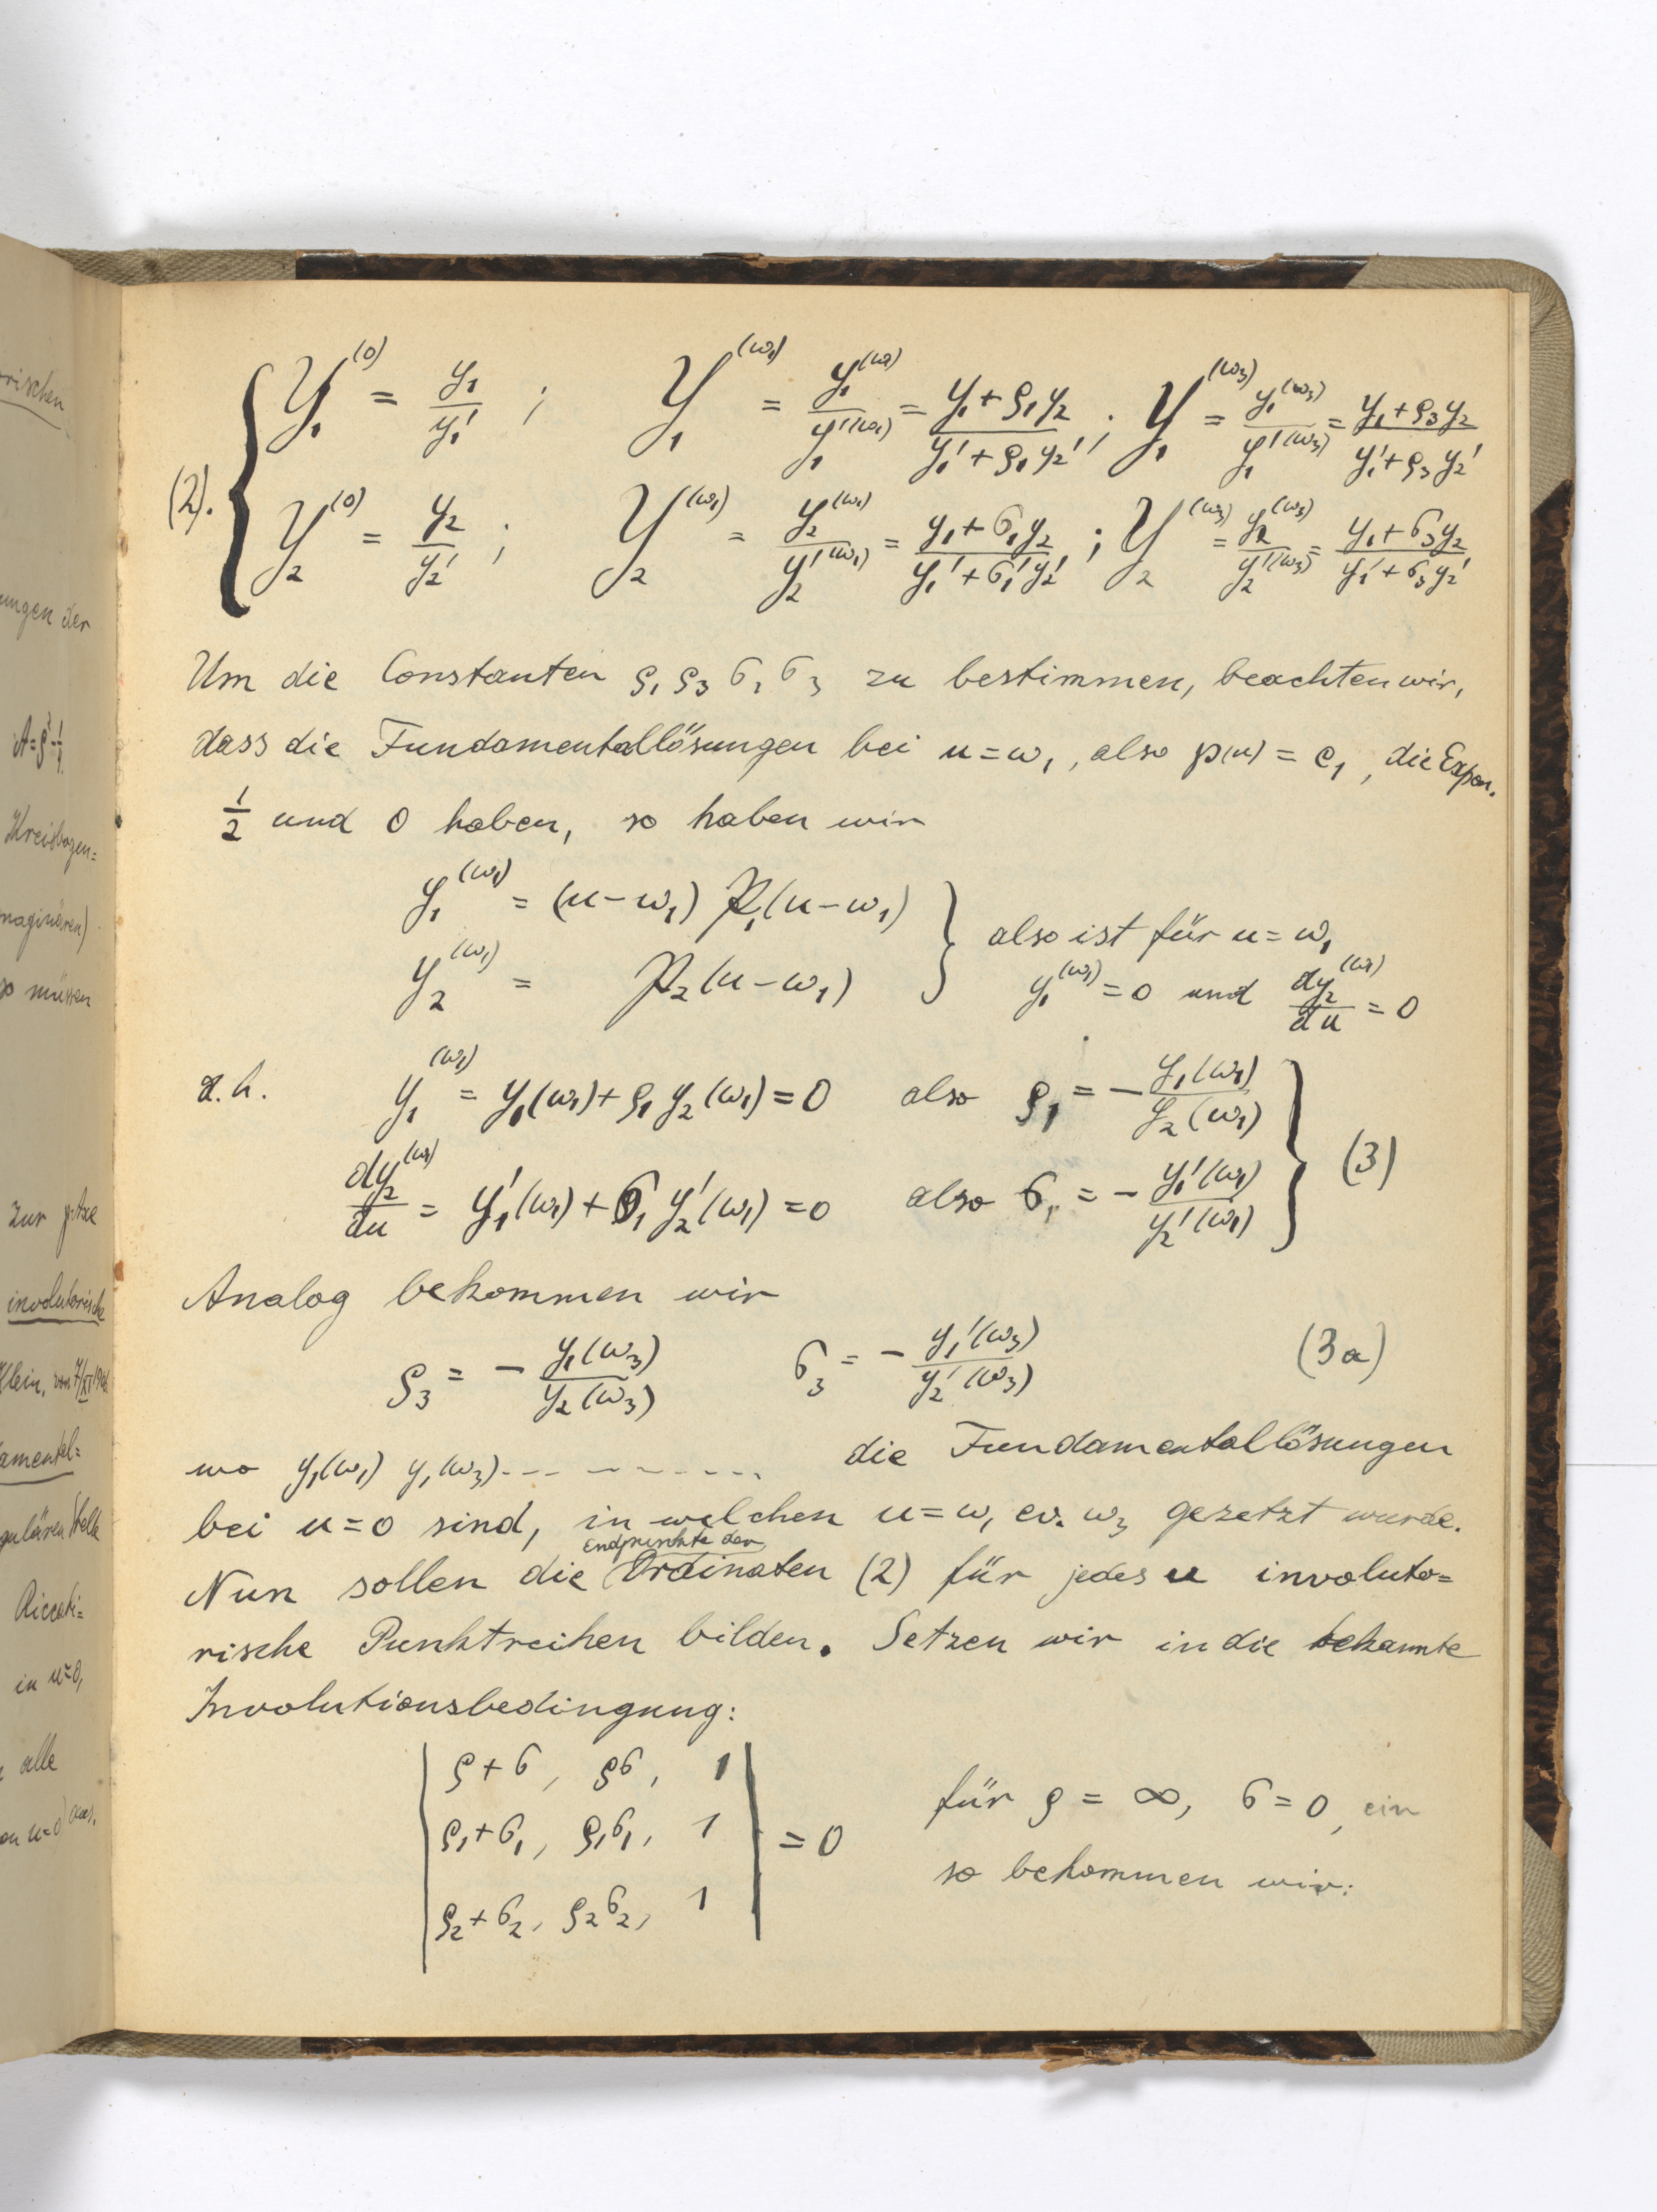 rischen
ungen der
A=ρ²-¼
Kreisbogen=
maginären)
so müssen
zur p-Axe
involutorische
Klein, von 7/XI 190
amental=
gulären Stelle
Riccati=
in u=0,
alle
on u=0 aus.
(2). { Y₁^(0) = y₁/y₁' ; Y₁^(ω₁) = y₁^(ω₁)/y₁'^(ω₁) = (y₁+ρ₁y₂)/(y₁'+ρ₁y₂') ; Y₁^(ω₃) = y₁^(ω₃)/y₁'^(ω₃) = (y₁+ρ₃y₂)/(y₁'+ρ₃y₂')
Y₂^(0) = y₂/y₂' ; Y₂^(ω₁) = y₂^(ω₁)/y₂'^(ω₁) = (y₁+σ₁y₂)/(y₁'+σ₁'y₂') ; Y₂^(ω₃) = y₂^(ω₃)/y₂'^(ω₃) = (y₁+σ₃y₂)/(y₁'+σ₃y₂')
Um die Constanten ρ₁ ρ₃ σ₁ σ₃ zu bestimmen, beachten wir,
dass die Fundamentallösungen bei u=ω₁, also ℘(u) = e₁, die Expon.
½ und 0 haben, so haben wir
y₁^(ω₁) = (u-ω₁) P₁(u-ω₁) } also ist für u=ω₁
y₂^(ω₁) = P₂(u-ω₁) y₁^(ω₁)=0 und dy₂^(ω₁)/du = 0
d.h. y₁^(ω₁) = y₁(ω₁)+ρ₁y₂(ω₁)=0 also ρ₁ = - y₁(ω₁)/y₂(ω₁) } (3)
dy₂^(ω₁)/du = y₁'(ω₁)+σ₁y₂'(ω₁)=0 also σ₁ = - y₁'(ω₁)/y₂'(ω₁)
Analog bekommen wir
ρ₃ = - y₁(ω₃)/y₂(ω₃) σ₃ = - y₁'(ω₃)/y₂'(ω₃) (3a)
wo y₁(ω₁) y₁(ω₃)........... die Fundamentallösungen
bei u=0 sind, in welchen u=ω₁ ev. ω₃ gesetzt wurde.
Endpunkte der
Nun sollen die Ordinaten (2) für jedes u involuto=
rische Punktreihen bilden. Setzen wir in die bekannte
Involutionsbedingung:
| ρ+σ, ρσ, 1 |
| ρ₁+σ₁, ρ₁σ₁, 1 | = 0 für ρ = ∞, σ=0, ein
| ρ₂+σ₂, ρ₂σ₂, 1 | so bekommen wir: